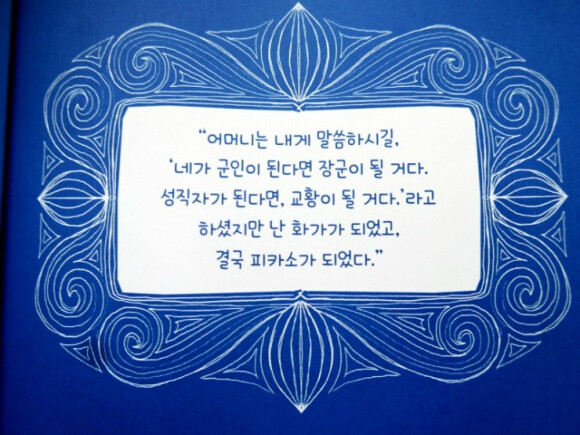 “어머니는 내게 말씀하시길,
‘네가 군인이 된다면 장군이 될 거다.
성직자가 된다면, 교황이 될 거다.’라고
하셨지만 난 화가가 되었고,
결국 피카소가 되었다.”